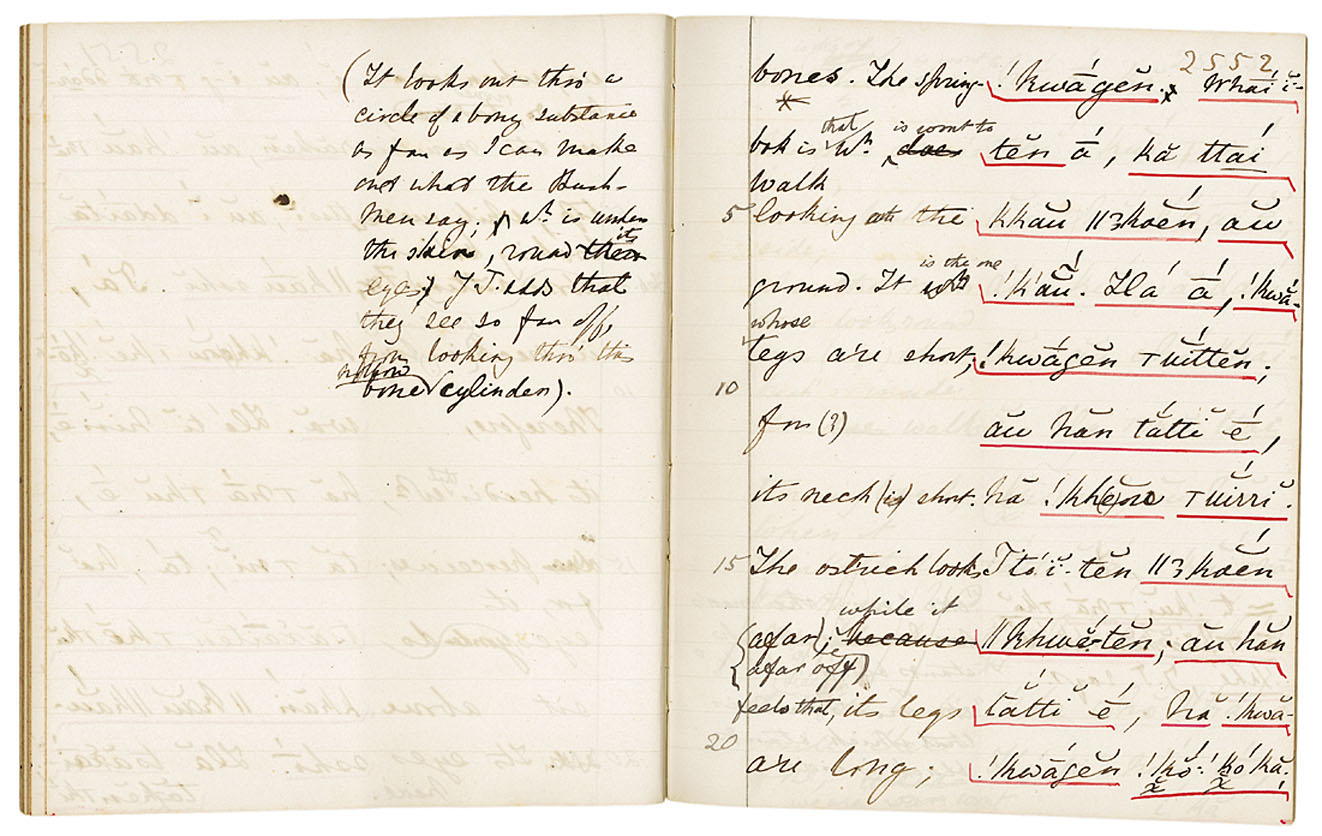 (It looks out thro' a
circle of a bony substance
as far as I can make
out what the Bush-
men say; wh. is under
the skin, round its
eyes; J.T. adds that
they see so far off,
from looking thro' this
narrow
bone (cylinder).
2552
bones. The spring- !kwāgĕn. Whái ĭ-
bok is that wh. does is wont to tĕn á, kă ttái
walk
5 looking at the kkău ||ʒkoĕ́n, ău
ground. It is the one !k'ău̇̆. Há á, !kwā-
whose
legs are short, !kwā́gĕn τuĭ́ttĕn;
10
for (?) ău hăn tắttĭ é,
its neck (is) short. hă !khẹ̄ τuĭ́rrĭ.
15 The ostrich looks Tóĭ-tĕn ||ʒkoĕ́n
while it
{afar); because ||khwĕ́-tĕn; ău hăn
{afar off)
feels that, its legs tắttĭ é, hă !kwā-
20
are long; !kwā́gĕn !kŏ́-!kŏ́kă.